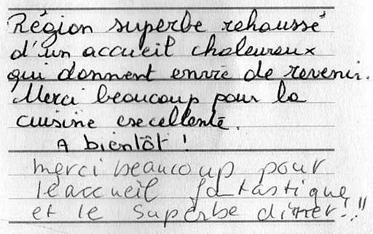 Région superbe rehaussé
d'un accueil chaleureux
qui donnent envie de revenir.
Merci beaucoup pour la
cuisine excellente.
A bientôt !
merci beaucoup pour
le accueil fantastique
et le superbe diner!!!